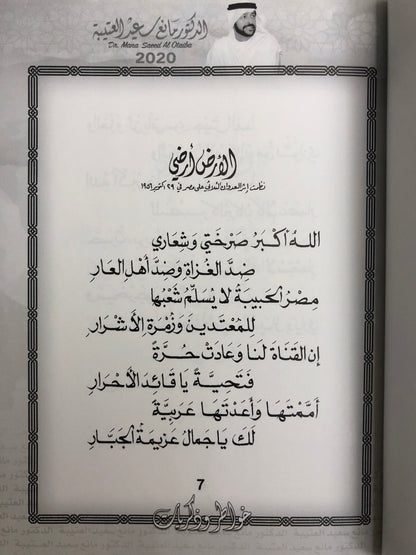 الدكتور مانع سعيد العتيبة
Dr. Mana Saeed Al Otaiba
2020
الأرض أرضي
نظمت إثر العدوان الثلاثي على مصر في ٢٩ أكتوبر ١٩٥٦
اللهُ أكْبَرُ صَرْخَتي وَشِعَاري
ضِدَّ الغُزَاةِ وَضِدَّ أهْلِ العَارِ
مِصْرُ الحَبِيبَةُ لا يُسَلِّمُ شَعْبُهَا
لِلمُعْتَدِينَ وَزُمْرَةِ الأشْرَارِ
إن القَنَاةَ لَنَا وَعَادَتْ حُرَّةً
فَتَحِيَّةً يَا قَائِدَ الأحْرَارِ
أمَّمْتَهَا وَأعَدْتَهَا عَرَبِيَّةً
لَكَ يَا جَمَالُ عَزِيمَةُ الجَبَّارِ
7
خواطر وذكريات